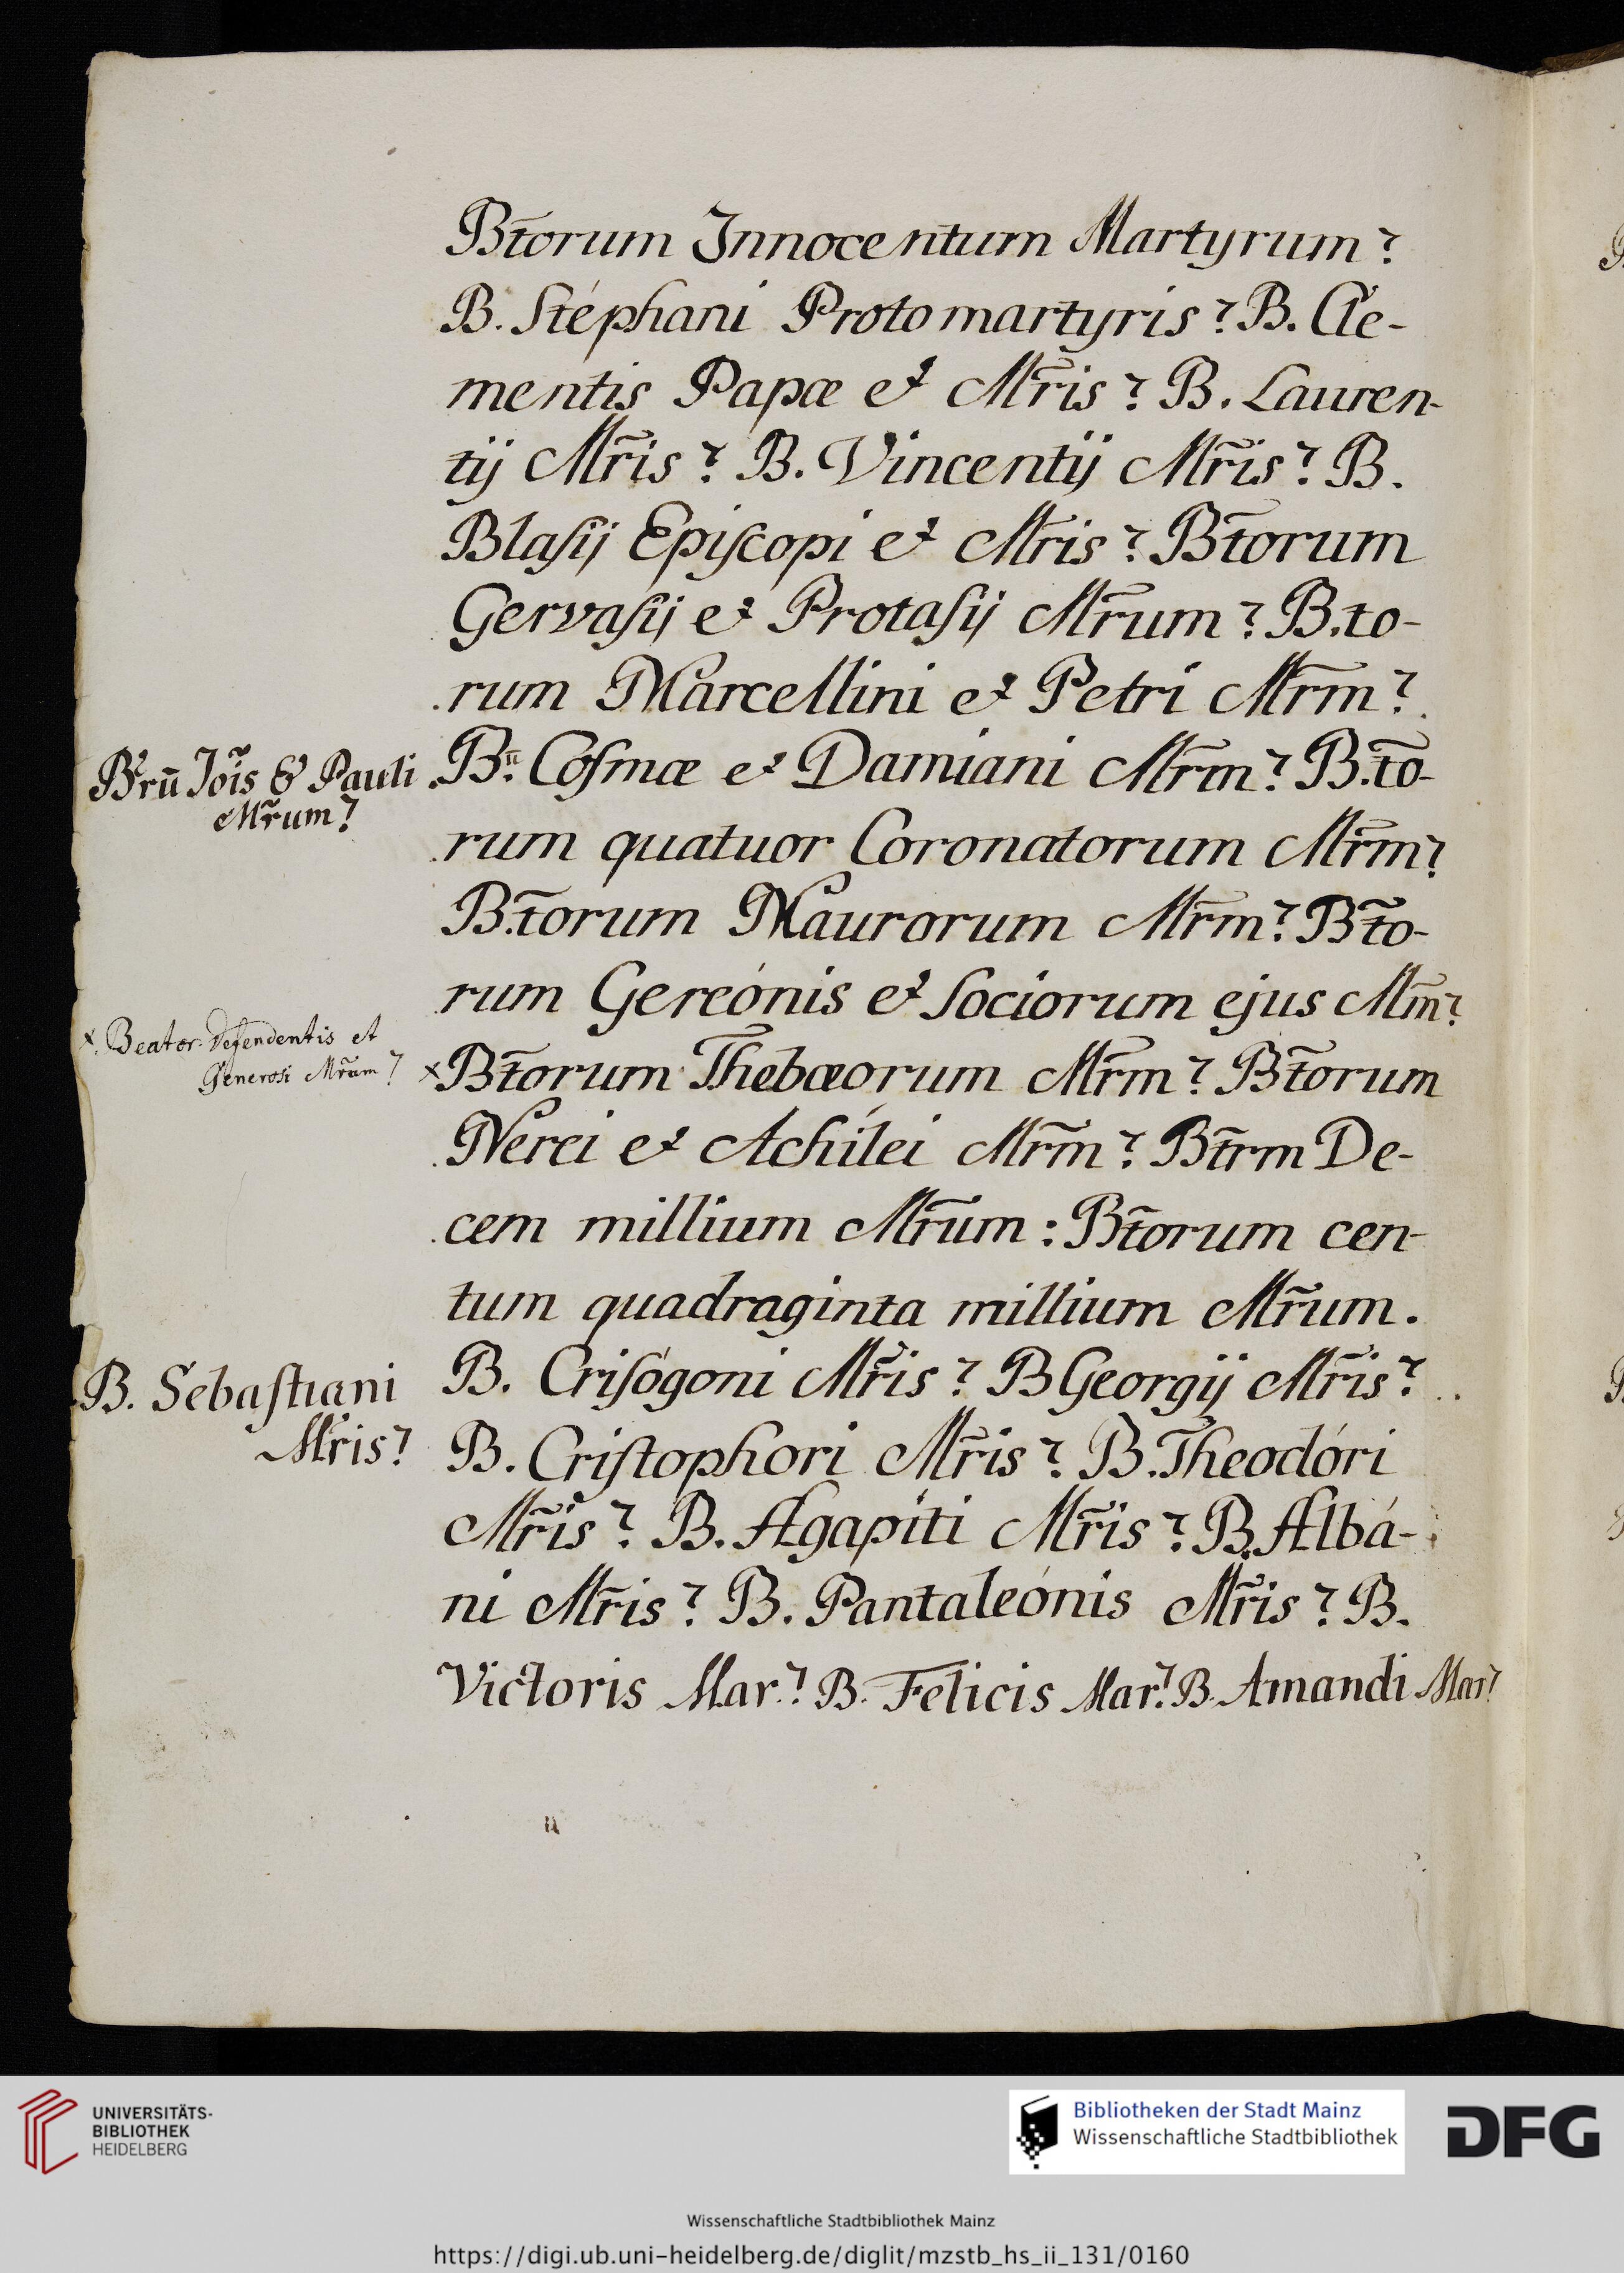 Bt̄orum Innocentum Martyrum?
B. Stéphani Protomartyris? B. Cle-
mentis Papæ et Mr̄is? B. Lauren-
tij Mr̄is? B. Vincentij Mr̄is? B.
Blaſij Epiſcopi et Mr̄is? Bt̄orum
Gervaſij et Protaſij Mr̄um? B.to-
rum Marcellini et Petri Mr̄m?
Btrū Jōis & Pauli
Mr̄um?
B. Coſmæ et Damiani Mr̄m? B.t̄o-
rum quatuor Coronatorum Mr̄m?
B.t̄orum Maurorum Mr̄m? Bt̄o-
rum Gereónis et Sociorum ejus Mm̄?
x. Beator. Defendentis et
Generosi Mr̄um?
x Bt̄orum Thebæorum Mr̄m? Bt̄orum
Nerei et Achílei Mr̄m? Bt̄rm De-
cem millium Mr̄um: Bt̄orum cen-
tum quadraginta millium Mr̄um.
B. Sebaſtiani
Mr̄is?
B. Criſógoni Mr̄is? B Georgij Mr̄is?
B. Criſtophori Mr̄is? B. Theodóri
Mr̄is? B. Agapíti Mr̄is? B. Albá-
ni Mr̄is? B. Pantaleónis Mr̄is? B.
Victoris Mar.? B. Felicis Mar? B. Amandi Mar?
UNIVERSITÄTS-
BIBLIOTHEK
HEIDELBERG
Bibliotheken der Stadt Mainz
Wissenschaftliche Stadtbibliothek
DFG
Wissenschaftliche Stadtbibliothek Mainz
https://digi.ub.uni-heidelberg.de/diglit/mzstb_hs_ii_131/0160